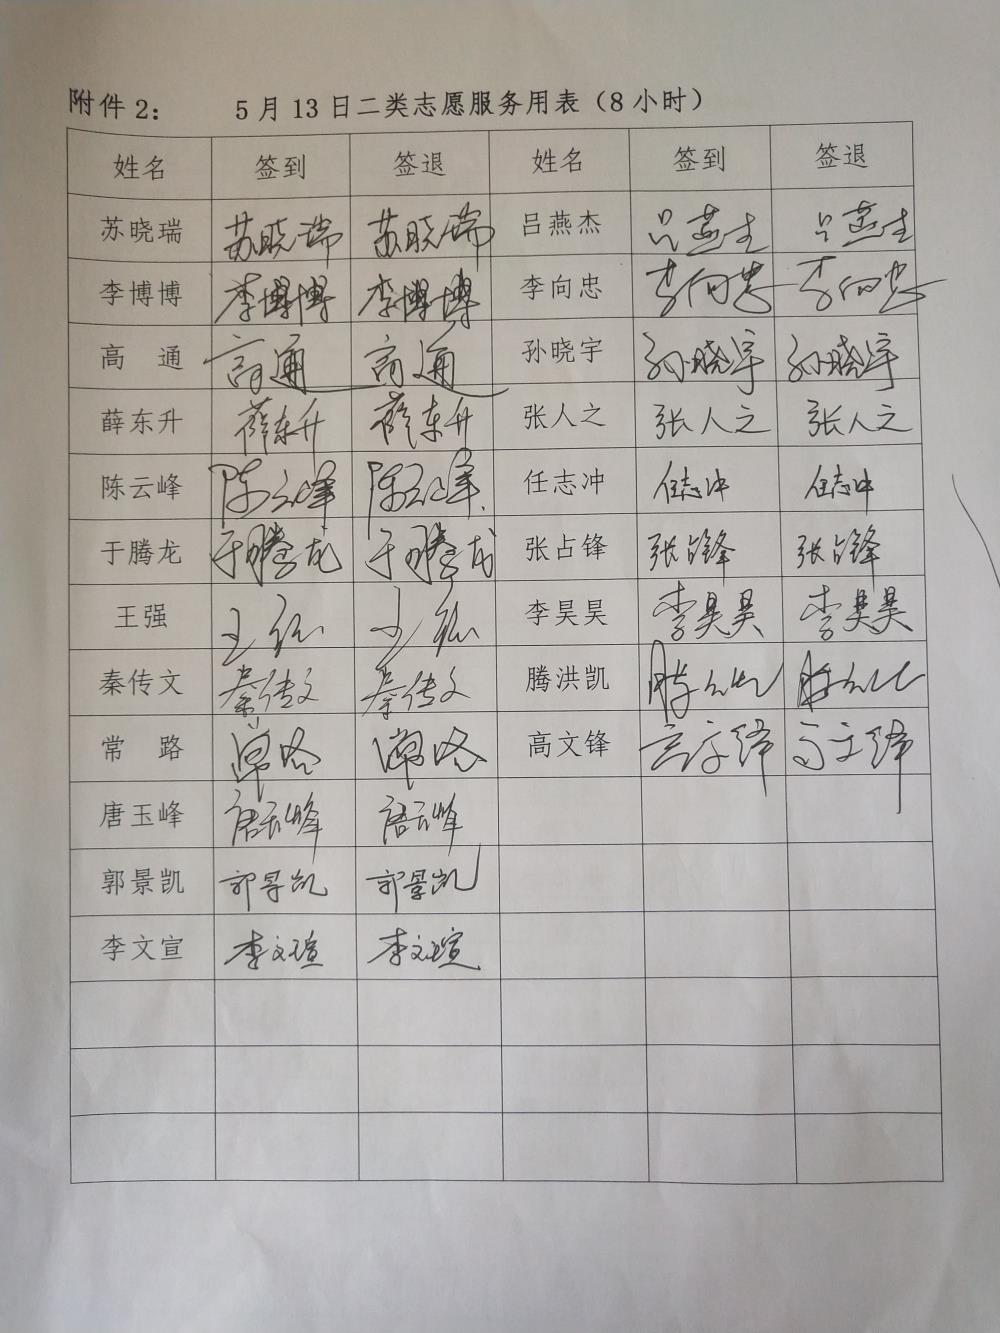 附件2： 5月13日二类志愿服务用表（8小时）
姓名 签到 签退 姓名 签到 签退
苏晓瑞 苏晓瑞 苏晓瑞 吕燕杰 吕燕杰 吕燕杰
李博博 李博博 李博博 李向忠 李向忠 李向忠
高 通 高通 高通 孙晓宇 孙晓宇 孙晓宇
薛东升 薛东升 薛东升 张人之 张人之 张人之
陈云峰 陈云峰 陈云峰 任志冲 任志冲 任志冲
于腾龙 于腾龙 于腾龙 张占锋 张占锋 张占锋
王强 王强 王强 李昊昊 李昊昊 李昊昊
秦传文 秦传文 秦传文 腾洪凯
常 路 常路 常路 高文锋 高文锋 高文锋
唐玉峰 唐玉峰 唐玉峰
郭景凯 郭景凯 郭景凯
李文宣 李文瑄 李文瑄